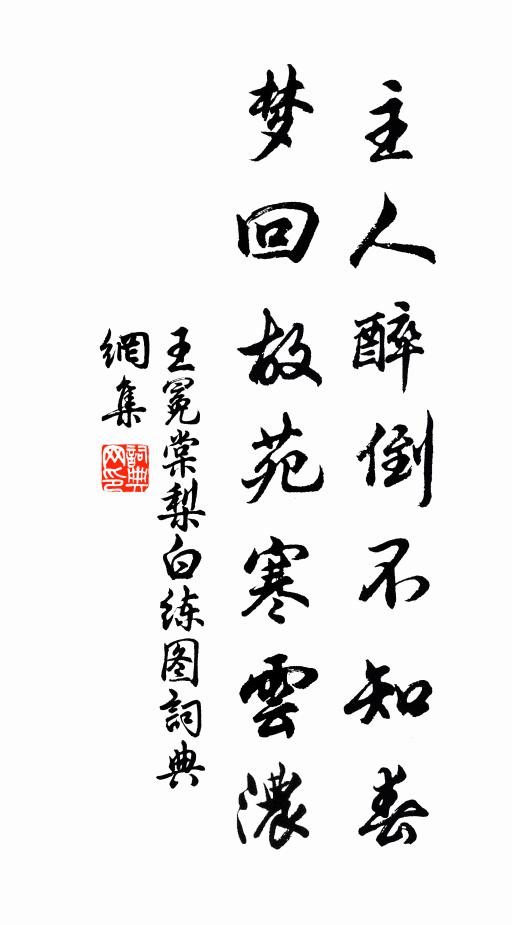 主人醉倒不知春
梦回故苑寒雲濃
王冕棠梨白练图詞典
網集
詞典
网印